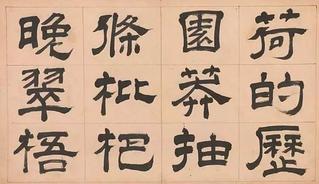 荷的歷
園莽抽
條枇杷
晚翠梧